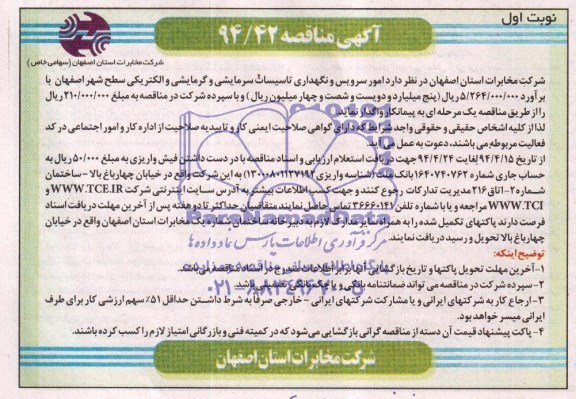 نوبت اول
آگهی مناقصه ۹۴/۴۲
شرکت مخابرات استان اصفهان (سهامی خاص)
شرکت مخابرات استان اصفهان در نظر دارد امور سرویس و نگهداری تاسیسات سرمایشی و گرمایشی و الکتریکی سطح شهر اصفهان با
برآورد ۵/۲۶۴/۰۰۰/۰۰۰ ریال (پنج میلیارد و دویست و شصت و چهار میلیون ریال) و با سپرده شرکت در مناقصه به مبلغ ۲۱۰/۰۰۰/۰۰۰ ریال
را از طریق مناقصه یک مرحله ای به پیمانکار واگذار نماید.
لذا از کلیه اشخاص حقیقی و حقوقی واجد شرایط که دارای گواهی صلاحیت ایمنی کار و تاییدیه صلاحیت از اداره کار و امور اجتماعی در کد
فعالیت مربوطه می باشند، دعوت به عمل می آید.
از تاریخ ۹۴/۴/۱۵ لغایت ۹۴/۴/۲۴ جهت دریافت استعلام ارزیابی و اسناد مناقصه با در دست داشتن فیش واریزی به مبلغ ۵۰/۰۰۰ ریال به
حساب جاری شماره ۱۶۴۰۷۴۰۷۶۲ بانک ملت (شناسه واریزی ۱۳۰۰۰۸۰۲۱۳۷۱۹۲) به این شرکت واقع در خیابان چهارباغ بالا -
شماره ۲-اتاق ۲۱۶ مدیریت تدارکات رجوع کنند و جهت کسب اطلاعات بیشتر به آدرس سایت اینترنتی شرکت WWW.TCE.IR و
WWW.TCI مراجعه و یا با شماره تلفن ۳۶۶۶۰۱۴۱ تماس حاصل نمایند متقاضیان حداکثر تا دو هفته پس از آخرین مهلت دریافت اسناد
فرصت دارند پاکتهای تکمیل شده را به همراه سایر مدارک لازم به دبیرخانه ساختمان شماره یک مخابرات استان اصفهان واقع در خیابان
چهارباغ بالا تحویل و رسید دریافت نمایند.
توضیح اینکه:
۱-آخرین مهلت تحویل پاکتها و تاریخ بازگشایی آنها برابر اطلاعات مندرج در اسناد مناقصه می باشد.
۲- سپرده شرکت در مناقصه می تواند ضمانتنامه بانکی و یا چک بانکی تضمینی باشد.
۳-ارجاع کار به شرکتهای ایرانی و یا مشارکت شرکتهای ایرانی - خارجی صرفاً به شرط داشتن حداقل ۵۱٪ سهم ارزشی کار برای طرف
ایرانی میسر خواهد بود.
۴- پاکت پیشنهاد قیمت آن دسته از مناقصه گرانی بازگشایی می شود که در کمیته فنی و بازرگانی امتیاز لازم را کسب کرده باشند.
شرکت مخابرات استان اصفهان
ParsNamadData
مرکز فرآوری اطلاعات پارس نماد داده ها